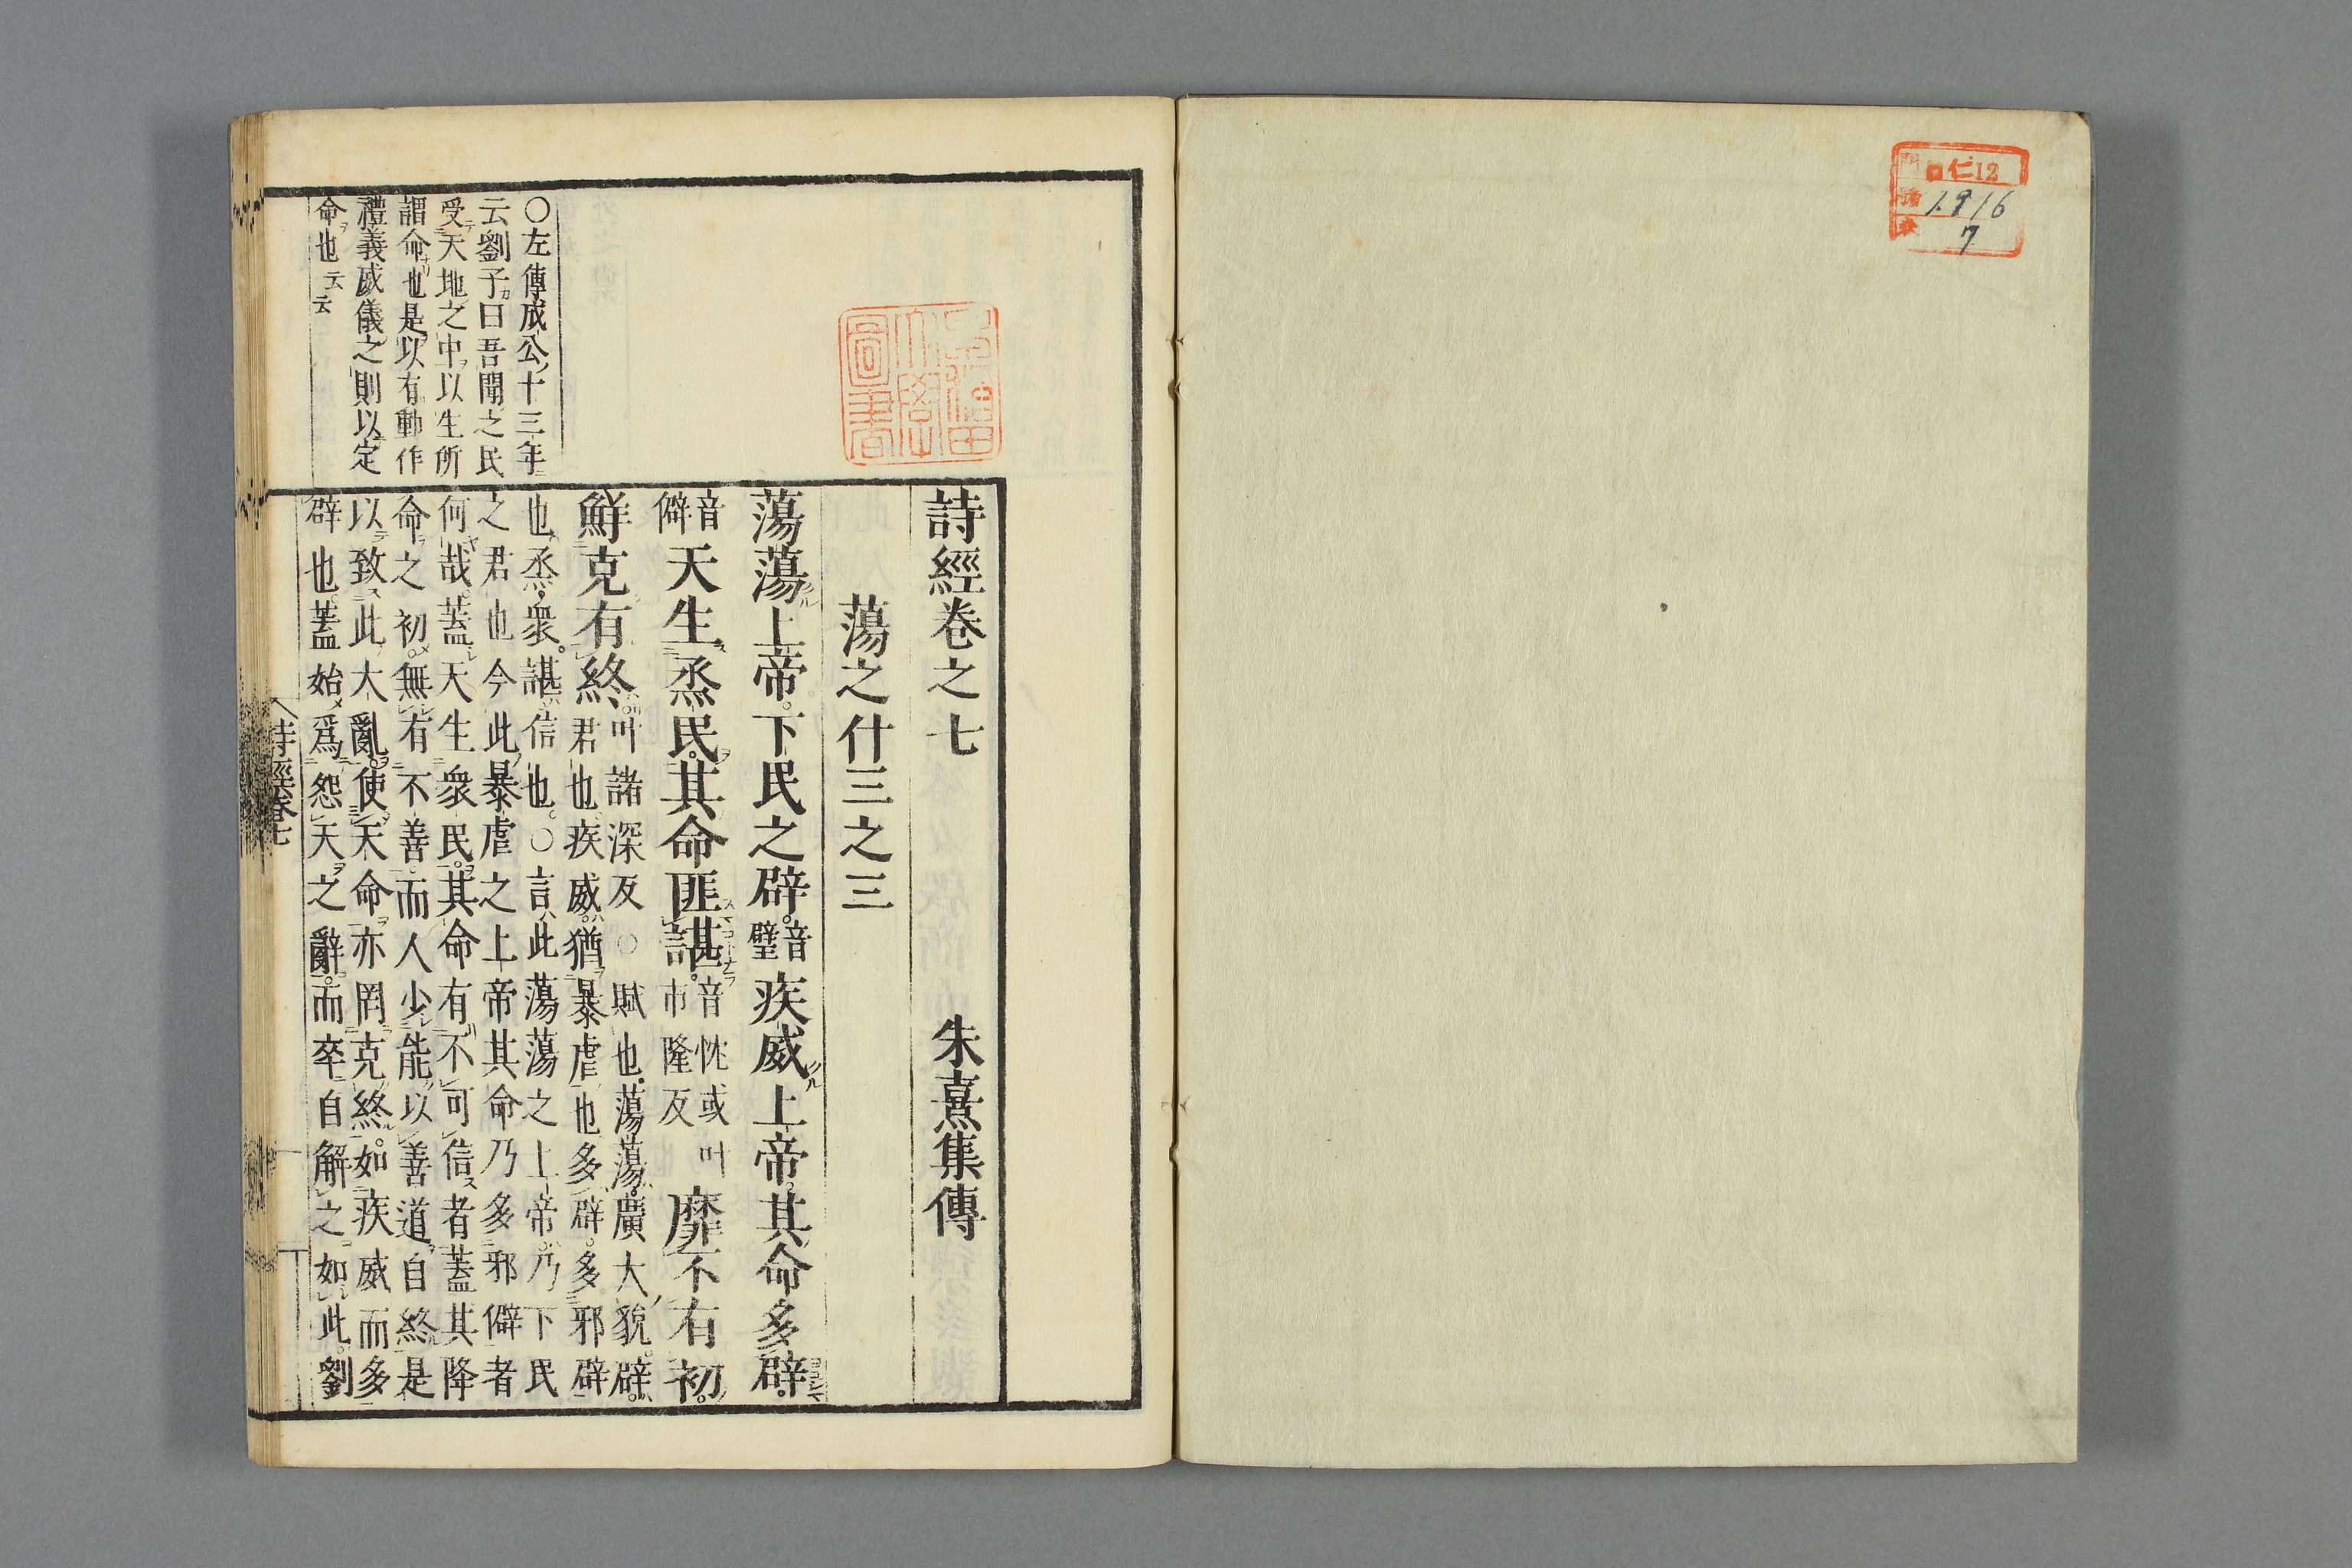 ロ仁12
1916
7
詩經卷之七 朱熹集傳
蕩之什三之三
蕩蕩上帝。下民之辟。音璧疾威上帝。其命多辟。
音僻天生烝民。其命匪諶。音忱或叶市隆反靡不有初。
鮮克有終。叶諸深反○賦也。蕩蕩。廣大貌。辟。
君也。疾威。猶暴虐也。多辟。多邪辟
也。烝。衆。諶。信也。○言此蕩蕩之上帝。乃下民
之君也今此暴虐之上帝其命乃多邪僻者
何哉。蓋天生衆民。其命有不可信者蓋其降
命之初。無有不善。而人少能以善道自終是
以致此大亂。使天命亦罔克終。如疾威而多
辟也。蓋始爲怨天之辭。而卒自解之如此。劉
○左傳成公十三年
云劉子曰吾聞之民
受天地之中以生所
謂命也是以有動作
禮義威儀之則以定
命也云云
詩經卷七
早稻田大學圖書